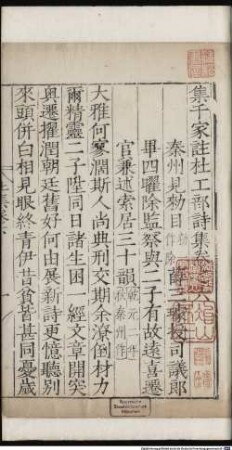 集千家註杜工部詩集卷之六
秦州見勑目 薛三璩授司議郎
畢四曜除監察與二子有故遠喜遷
官兼述索居三十韻 乾元二年秋秦州作
大雅何寥濶斯人尚典刑交期余潦倒材力
爾精靈二子陞同日諸生困一經文章開突
奥遷擢潤朝廷舊好何由展新詩更憶聽别
來頭併白相見眼終青伊昔貧皆甚同憂歲